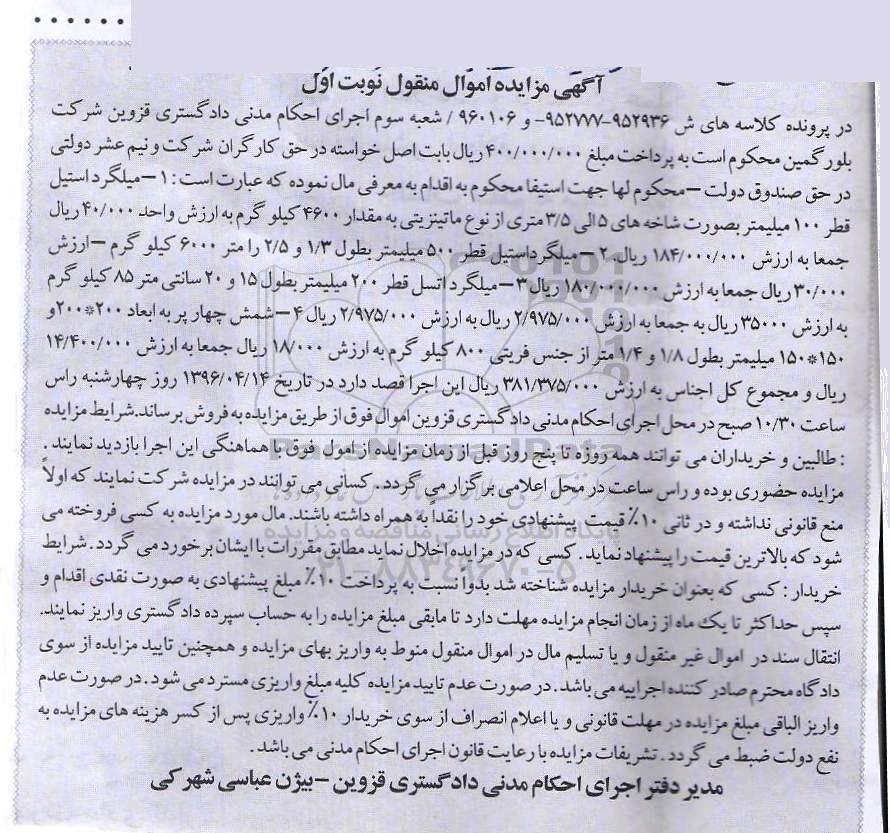 آگهی مزایده اموال منقول نوبت اول
در پرونده کلاسه های ش ۹۵۲۹۳۶-۹۵۲۷۷۷- و ۹۶۰۱۰۶ / شعبه سوم اجرای احکام مدنی دادگستری قزوین شرکت
بلور گمین محکوم است به پرداخت مبلغ ۴۰۰/۰۰۰/۰۰۰ ریال بابت اصل خواسته در حق کارگران شرکت و نیم عشر دولتی
در حق صندوق دولت – محکوم لها جهت استیفا محکوم به اقدام به معرفی مال نموده که عبارت است : ۱– میلگرد استیل
قطر ۱۰۰ میلیمتر بصورت شاخه های ۵ الی ۳/۵ متری از نوع ماتینزیتی به مقدار ۴۶۰۰ کیلو گرم به ارزش واحد ۴۰/۰۰۰ ریال
جمعا به ارزش ۱۸۴/۰۰۰/۰۰۰ ریال. ۲ – میلگرداستیل قطر ۵۰۰ میلیمتر بطول ۱/۳ و ۲/۵ را متر ۶۰۰۰ کیلو گرم – ارزش
۳۰/۰۰۰ ریال جمعا به ارزش ۱۸۰/۰۰۰/۰۰۰ ریال ۳– میلگرد اتسل قطر ۲۰۰ میلیمتر بطول ۱۵ و ۲۰ سانتی متر ۸۵ کیلو گرم
به ارزش ۳۵۰۰۰ ریال به جمعا به ارزش ۲/۹۷۵/۰۰۰ ریال به ارزش ۲/۹۷۵/۰۰۰ ریال ۴– شمش چهار پر به ابعاد ۲۰۰*۲۰۰ و
۱۵۰*۱۵۰ میلیمتر بطول ۱/۸ و ۱/۴ متر از جنس فریتی ۸۰۰ کیلو گرم به ارزش ۱۸/۰۰۰ ریال جمعا به ارزش ۱۴/۴۰۰/۰۰۰
ریال و مجموع کل اجناس به ارزش ۳۸۱/۳۷۵/۰۰۰ ریال این اجرا قصد دارد در تاریخ ۱۳۹۶/۰۴/۱۴ روز چهارشنبه راس
ساعت ۱۰/۳۰ صبح در محل اجرای احکام مدنی دادگستری قزوین اموال فوق از طریق مزایده به فروش برساند.شرایط مزایده
: طالبین و خریداران می توانند همه روزه تا پنج روز قبل از زمان مزایده از امول فوق با هماهنگی این اجرا بازدید نمایند .
مزایده حضوری بوده و راس ساعت در محل اعلامی برگزار می گردد . کسانی می توانند در مزایده شرکت نمایند که اولاً
منع قانونی نداشته و در ثانی ۱۰٪ قیمت پیشنهادی خود را نقداً به همراه داشته باشند. مال مورد مزایده به کسی فروخته می
شود که بالاترین قیمت را پیشنهاد نماید . کسی که در مزایده اخلال نماید مطابق مقررات با ایشان برخورد می گردد . شرایط
خریدار : کسی که بعنوان خریدار مزایده شناخته شد بدواً نسبت به پرداخت ۱۰٪ مبلغ پیشنهادی به صورت نقدی اقدام و
سپس حداکثر تا یک ماه از زمان انجام مزایده مهلت دارد تا مابقی مبلغ مزایده را به حساب سپرده دادگستری واریز نمایند.
انتقال سند در اموال غیر منقول و یا تسلیم مال در اموال منقول منوط به واریز بهای مزایده و همچنین تایید مزایده از سوی
دادگاه محترم صادر کننده اجراییه می باشد . در صورت عدم تایید مزایده کلیه مبلغ واریزی مسترد می شود . در صورت عدم
واریز الباقی مبلغ مزایده در مهلت قانونی و یا اعلام انصراف از سوی خریدار ۱۰٪ واریزی پس از کسر هزینه های مزایده به
نفع دولت ضبط می گردد . تشریفات مزایده با رعایت قانون اجرای احکام مدنی می باشد .
مدیر دفتر اجرای احکام مدنی دادگستری قزوین – بیژن عباسی شهرکی
ParsNamadData
پایگاه اطلاع رسانی مناقصه و مزایده
۰۲۱-۸۸۳۴۹۶۷۰-۵